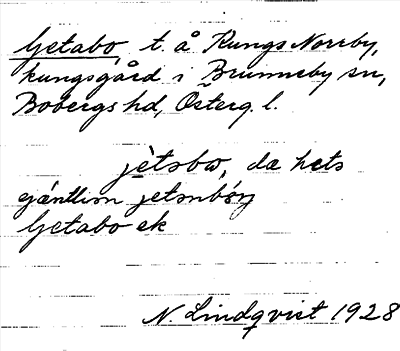 Getabo, t. å Kungs Norrby,
kungsgård i Brunneby sn,
Bobergs hd, Österg. l.
jètsbω, dα hets
Getabo ek
N. Lindqvist 1928